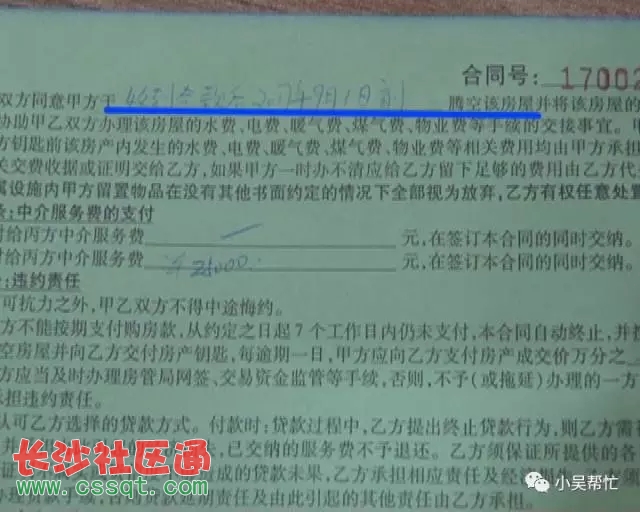 合同号: 17002
双方同意甲方于 收到全款后2017年9月1日前 腾空该房屋并将该房屋的
协助甲乙双方办理该房屋的水费、电费、暖气费、煤气费、物业费等手续的交接事宜。甲
方钥匙前该房产内发生的水费、电费、暖气费、煤气费、物业费等相关费用均由甲方承担
关交费收据或证明交给乙方,如果甲方一时办不清应给乙方留下足够的费用由乙方代
属设施内甲方留置物品在没有其他书面约定的情况下全部视为放弃,乙方有权任意处置
条:中介服务费的支付
付给丙方中介服务费 元,在签订本合同的同时交纳。
付给丙方中介服务费 元,在签订本合同的同时交纳。
:违约责任
可抗力之外,甲乙双方不得中途悔约。
方不能按期支付购房款,从约定之日起7个工作日内仍未支付,本合同自动终止,并按
空房屋并向乙方交付房产钥匙,每逾期一日,甲方应向乙方支付房产成交价万分之
方应当及时办理房管局网签、交易资金监管等手续,否则,不予(或拖延)办理的一方
承担违约责任。
认可乙方选择的贷款方式。付款时:贷款过程中,乙方提出终止贷款行为,则乙方需
,已交纳的服务费不予退还。乙方须保证所提供的各
成的贷款未果,乙方承担相应责任及经
责任及由此引起的其他责任由乙方承担。
长沙社区通
www.cssqt.com
小吴帮忙